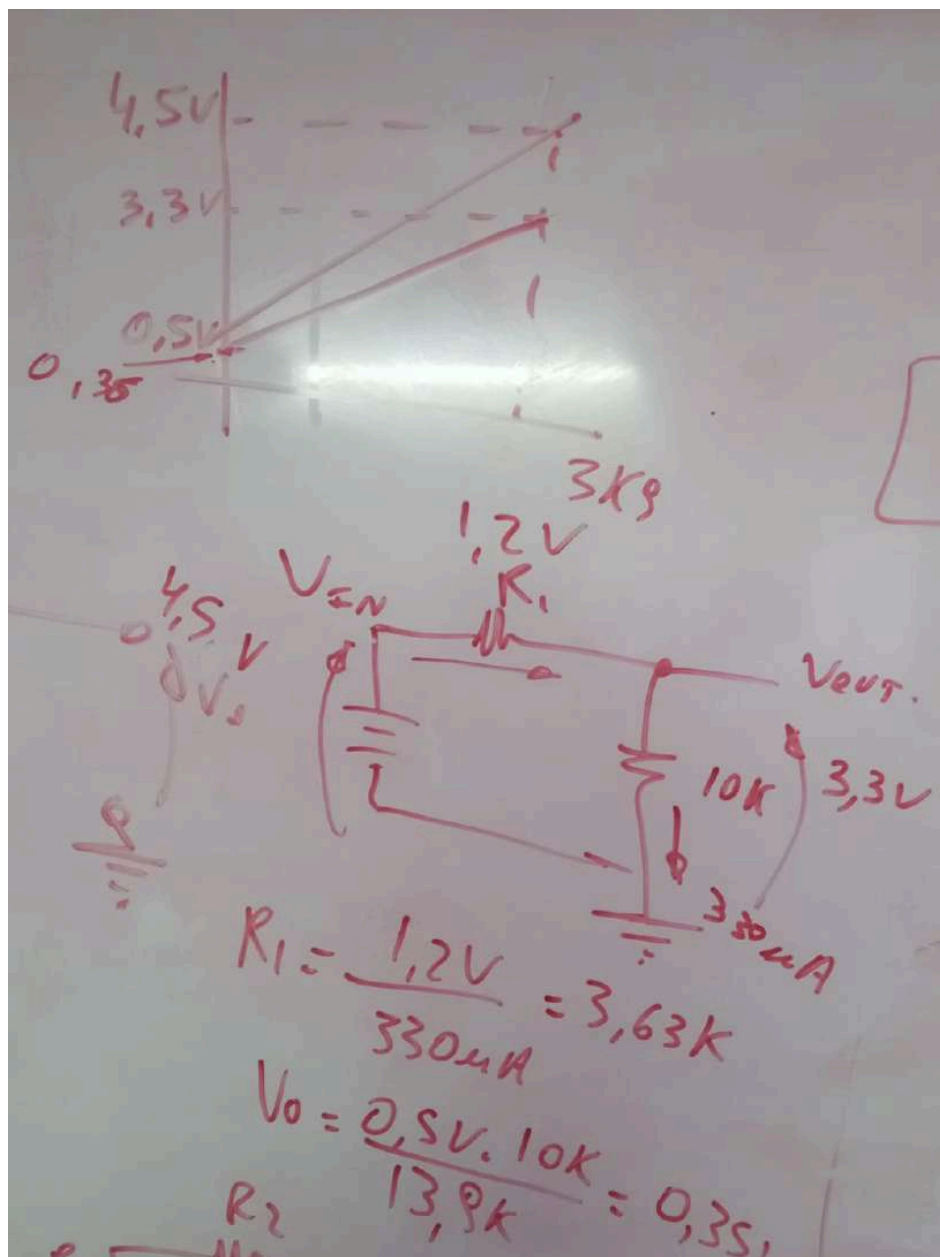 4,5V
3,3V
0,5V
0,35
3Kg
1,2V
R1
VIN
4,5V
Vout.
10K
3,3V
330µA
R1 = 1,2V / 330µA = 3,63K
V0 = 0,5V. 10K / 13,9K = 0,35
R2